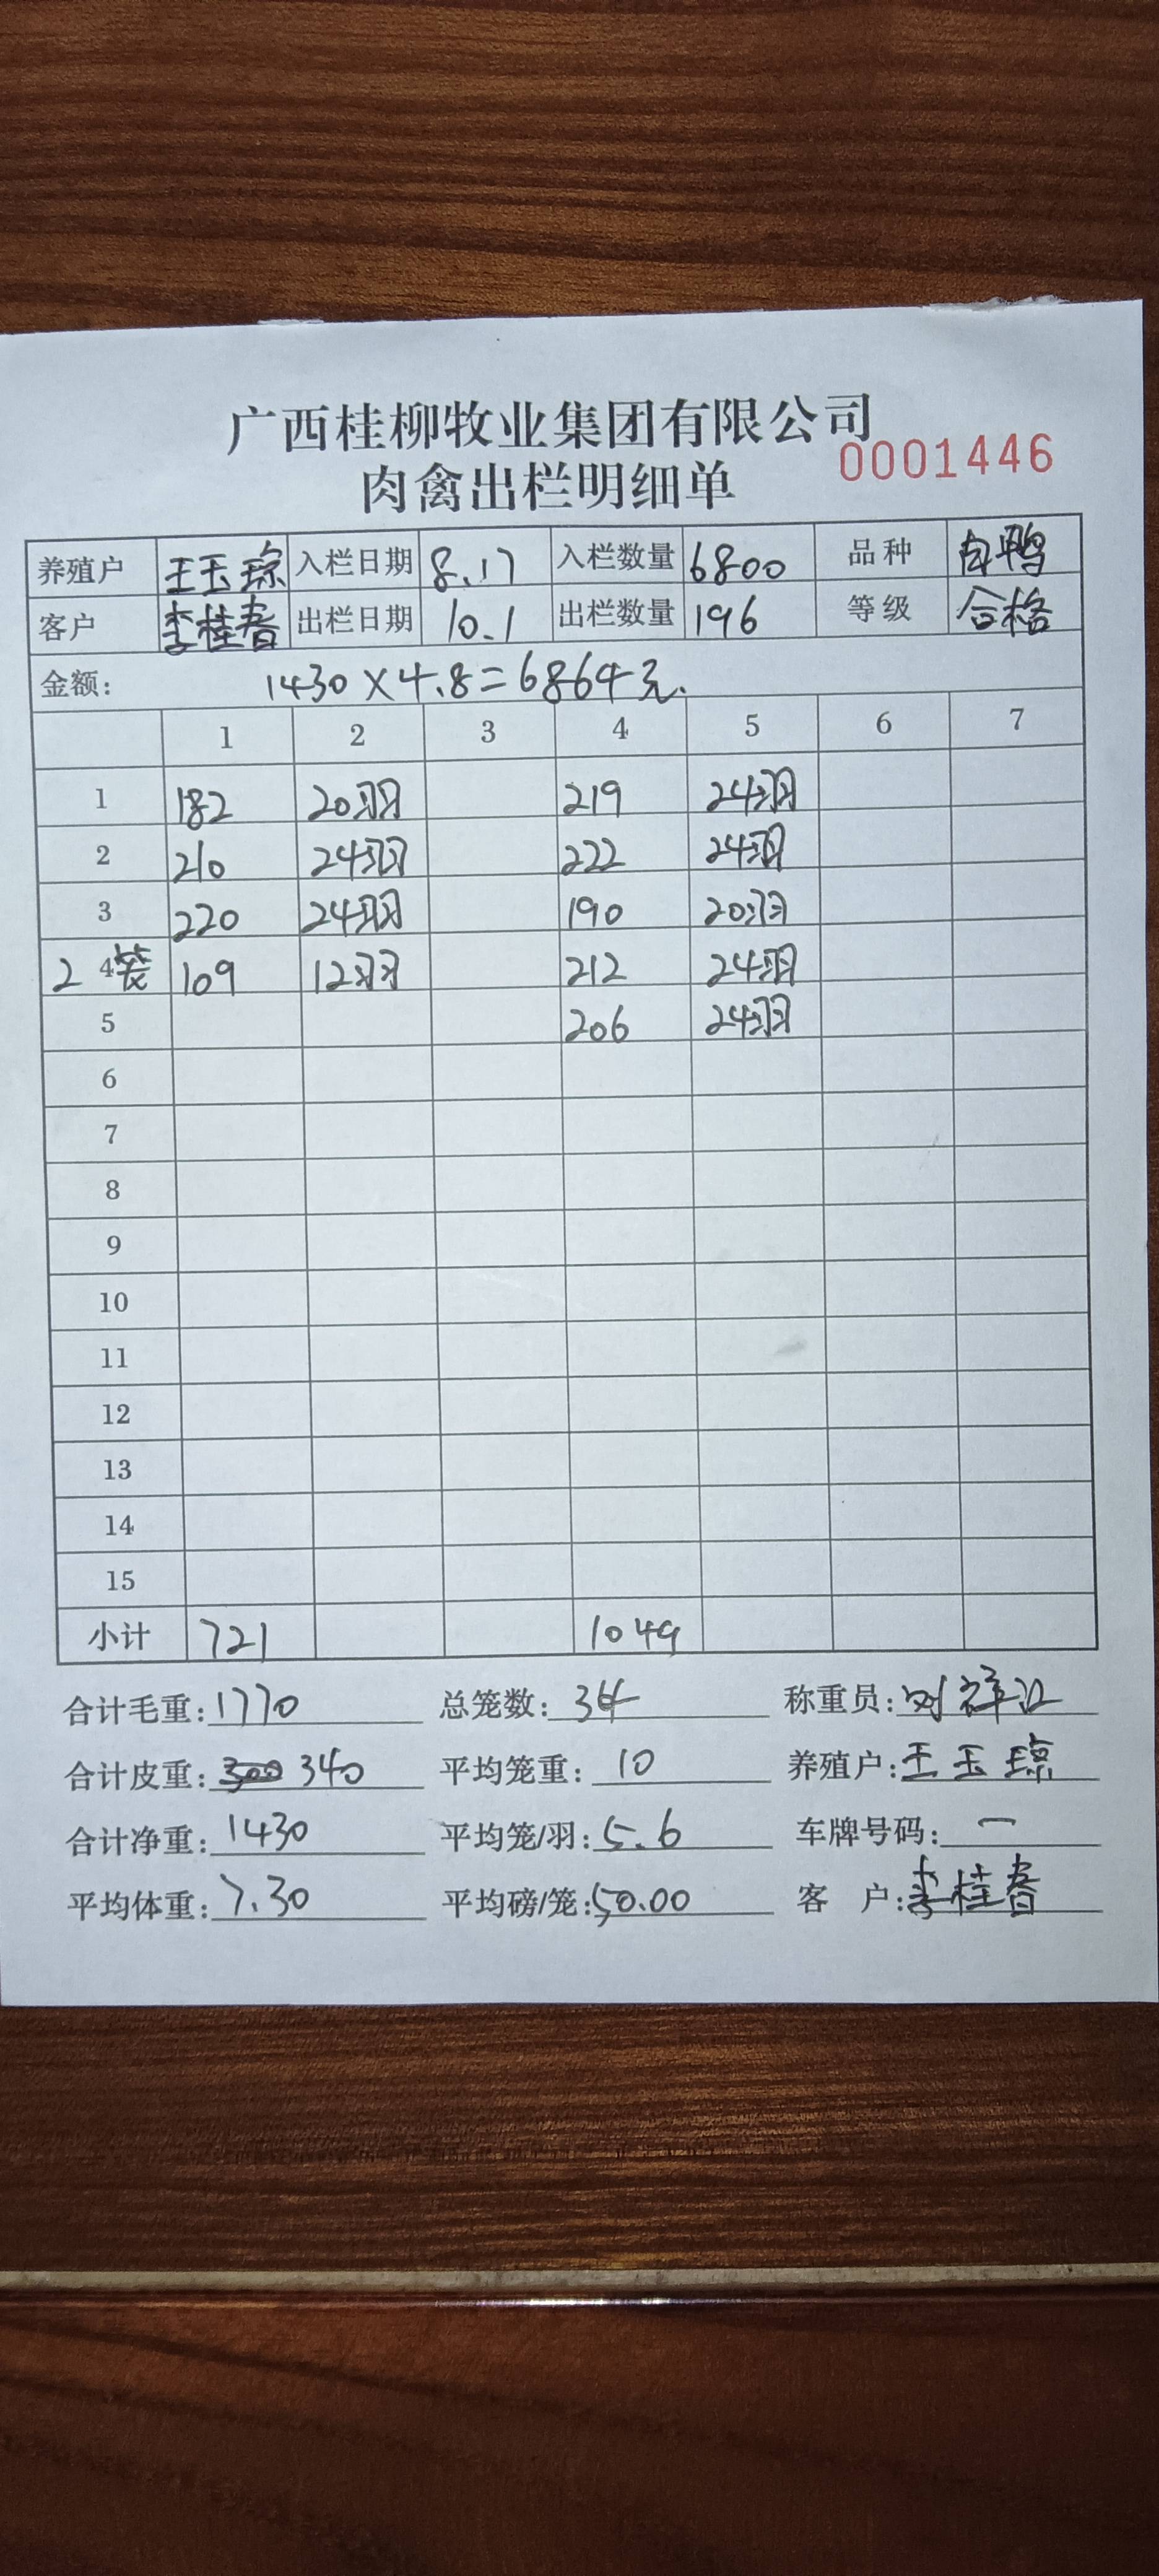 广西桂柳牧业集团有限公司
肉禽出栏明细单 0001446
养殖户 王玉琼 入栏日期 8.17 入栏数量 6800 品种 白鸭
客户 李桂春 出栏日期 10.1 出栏数量 196 等级 合格
金额: 1430×4.8=6864元.
1 2 3 4 5 6 7
1 182 20羽 219 24羽
2 210 24羽 222 24羽
3 220 24羽 190 20羽
2 4 109 12羽 212 24羽
5 206 24羽
6
7
8
9
10
11
12
13
14
15
小计 721 1049
合计毛重: 1770 总笼数: 34 称重员: 刘祥江
合计皮重: 300 340 平均笼重: 10 养殖户: 王玉琼
合计净重: 1430 平均笼/羽: 5.6 车牌号码: 一
平均体重: 7.30 平均磅/笼: 50.00 客 户: 李桂春